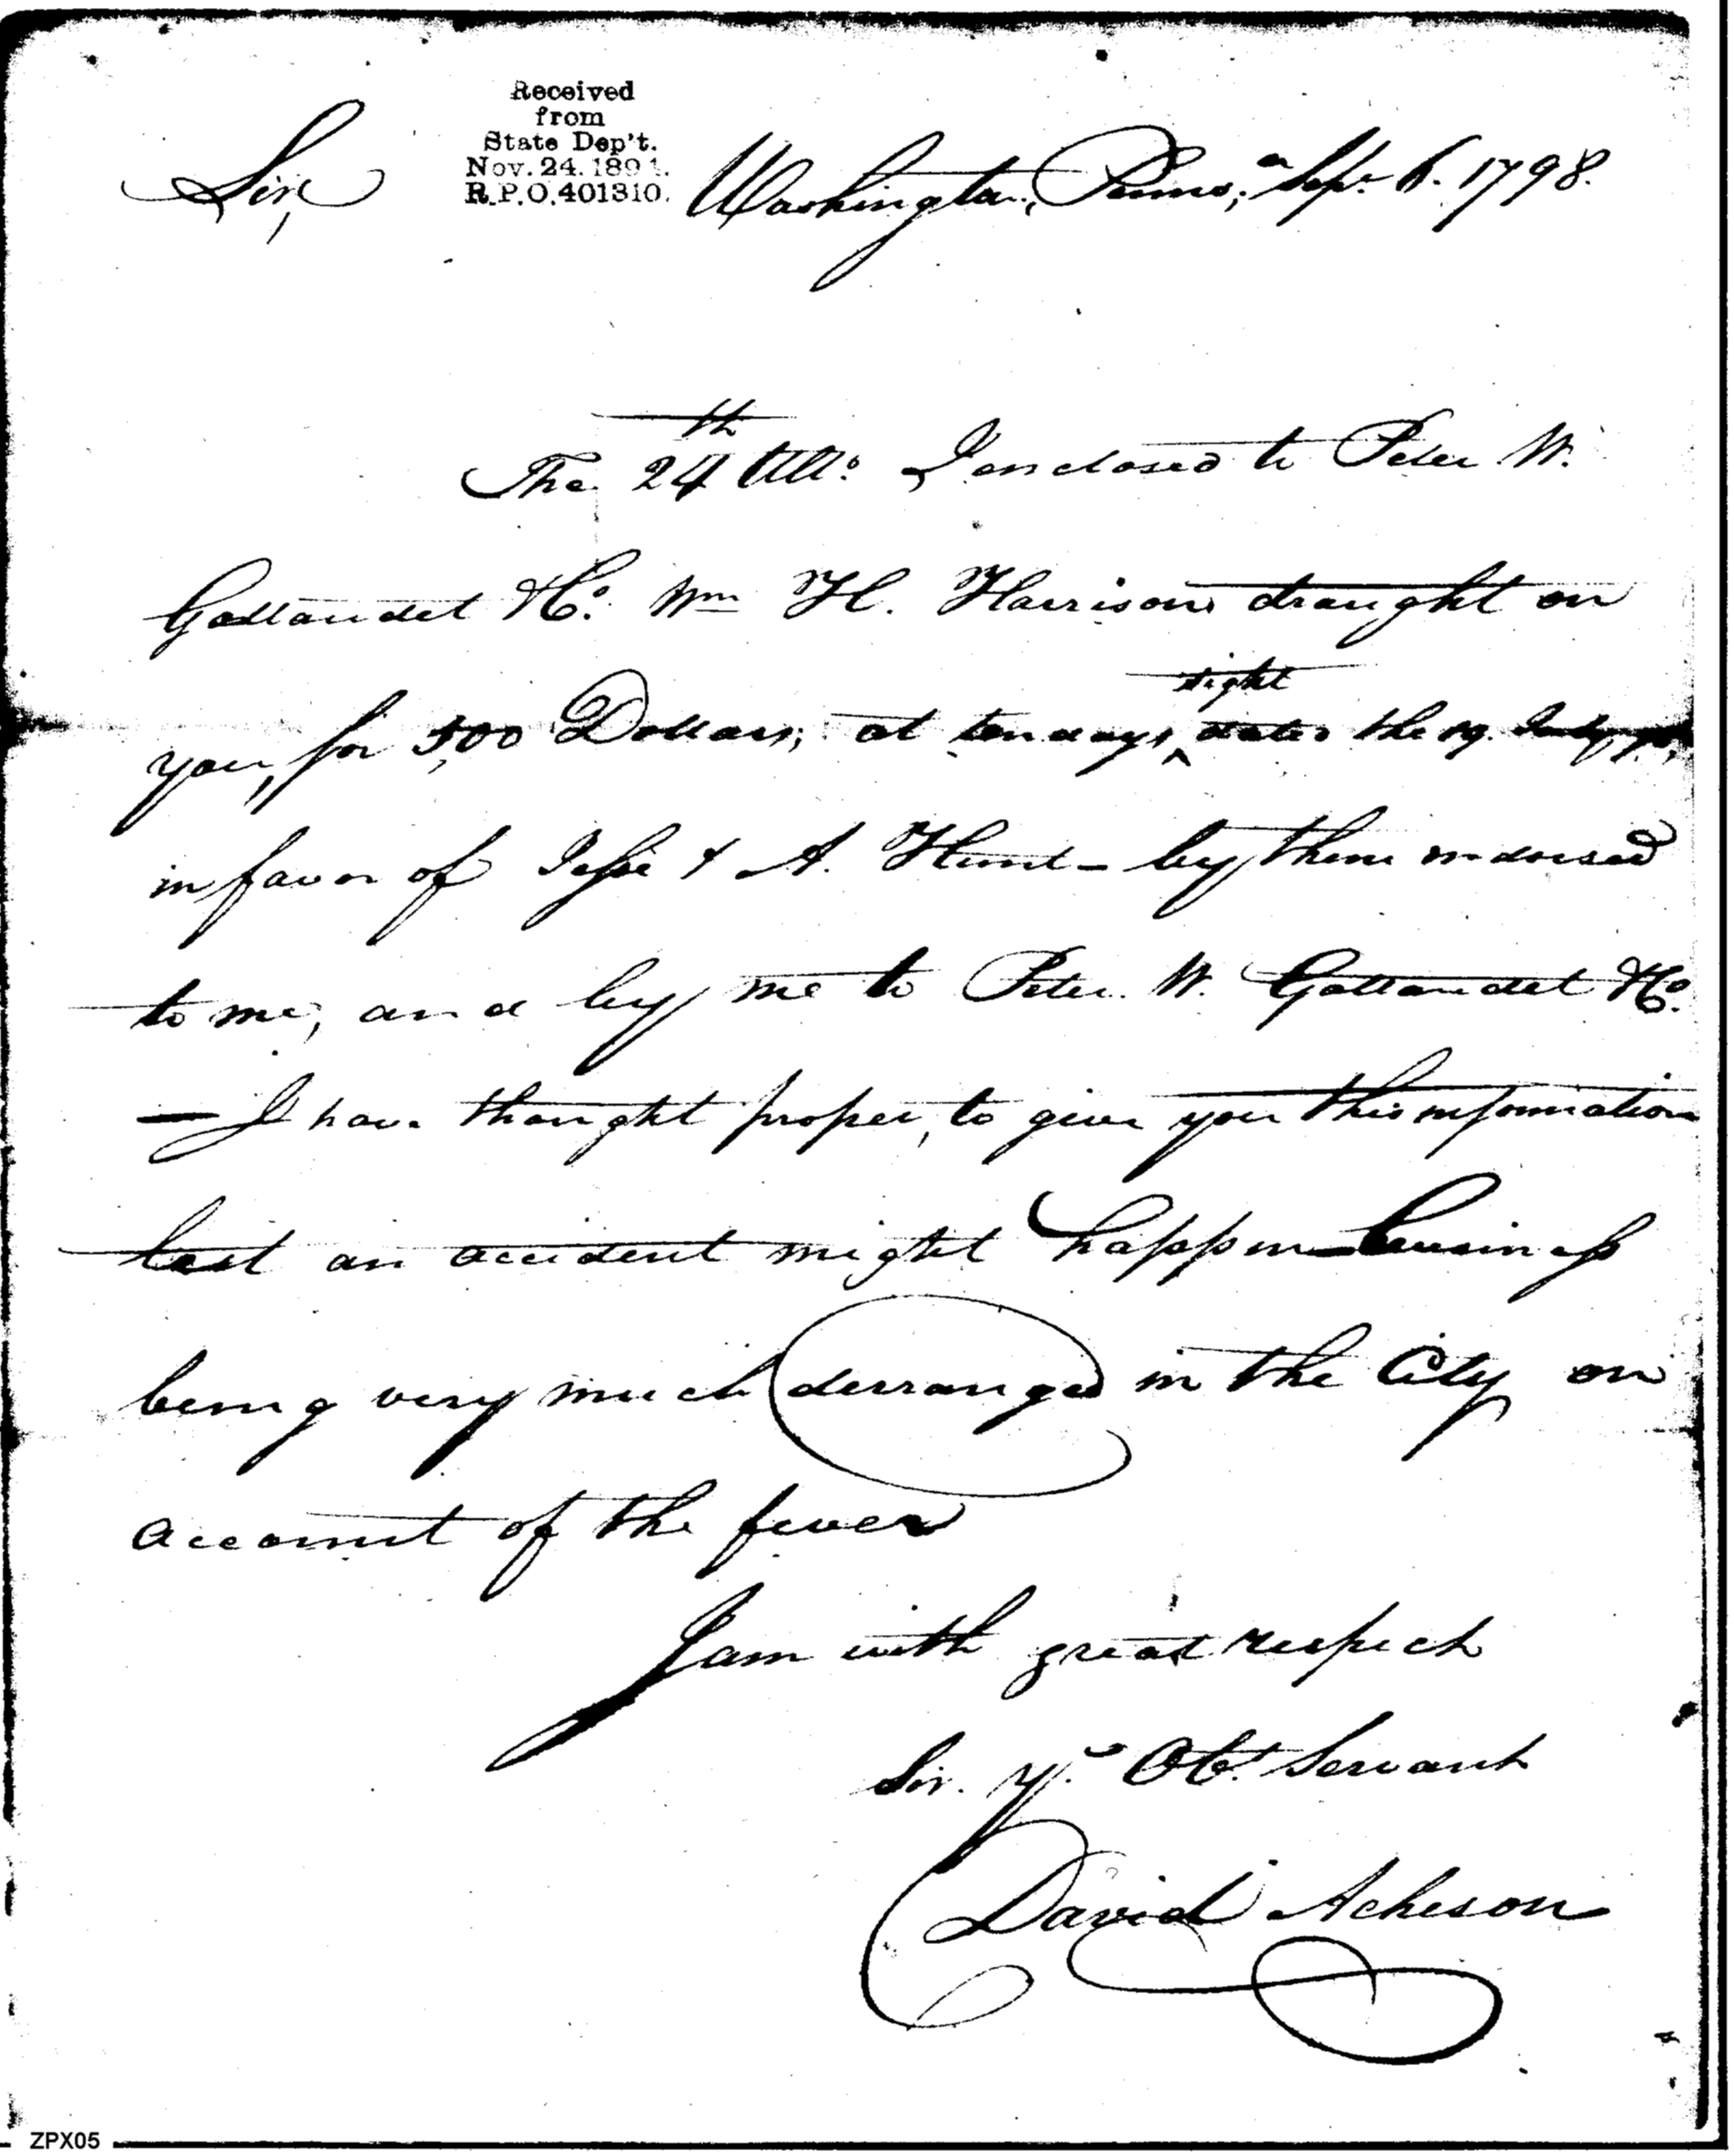 Received
from
State Dep't.
Nov. 24. 1894.
R.P.O. 401310.
Sir,
Washington, Penns,a Sepr. 6. 1798.
The 24th Ulto. I enclosed to Peter W.
Gallaudet & Co. Wm H. Harrisons draught on
you, for 500 Dollars, at ten days, sight dated the 19. July
in favor of Jesse & A. Hunt - by them indorsed
to me, and by me to Peter. W. Gallaudet & Co.
— I have thought proper, to give you this information
lest an accident might happen — business
being very much derranged in the City on
account of the fever
I am with great respect
Sir. yr. Obt. Servant
David Acheson
ZPX05